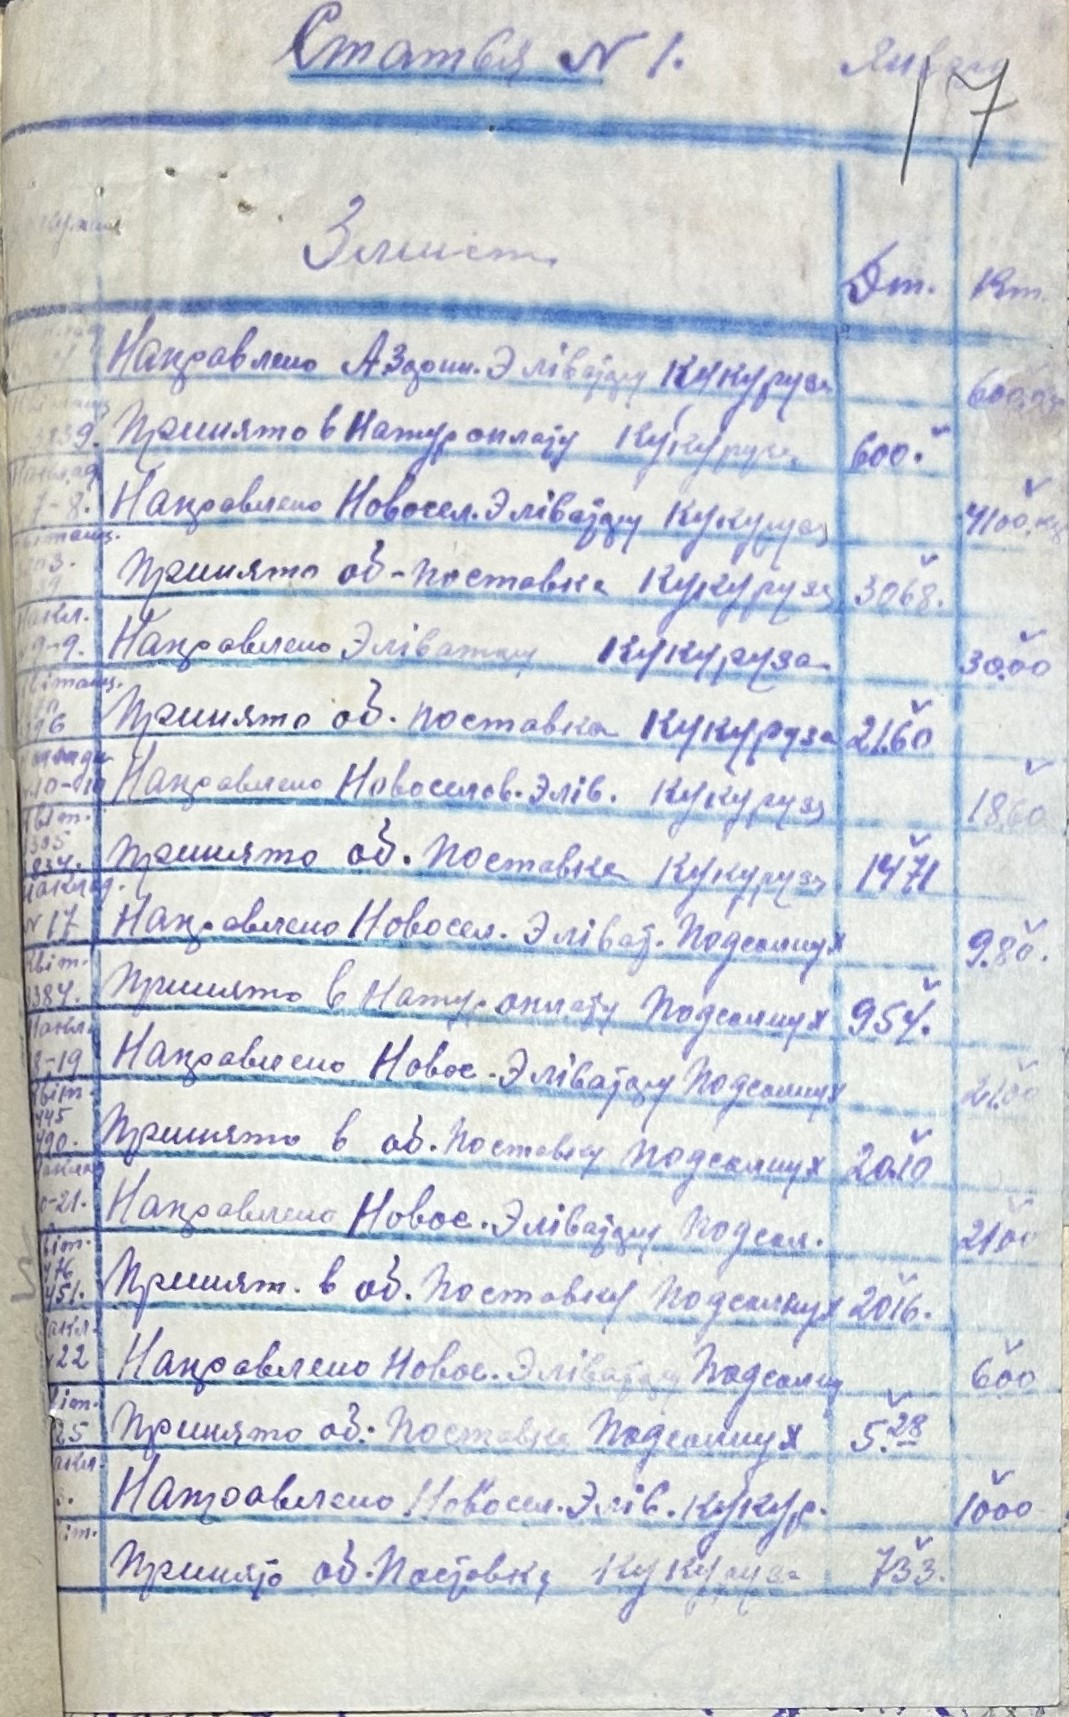 Статья N 1. Январь
17
Зміст Дт. Кт.
Направлено Элівату Кукуруза 600
39. Принято в Натуроплату Кукуруза 600.
7-8. Направлено Новосел. Элівату Кукуруза 4100.кг
Принято об-поставка Кукуруза 3068.
Накл.
9-9. Направлено Элівату Кукуруза 30.00
96 Принято об. поставка Кукуруза 21.60
10-10 Направлено Новоселов. Элів. Кукуруза 18.60
Принято об. Поставка Кукуруза 1471
Наклад.
N 17 Направлено Новосел. Эліват. Подсолнух 9.80.
Квіт.
384. Принято в Натуроплату Подсолнух 954.
Накл.
8-19 Направлено Новос. Элівату Подсолнух 21.00
Квіт.
445
490. Принято в об. Поставку Подсолнух 20.10
-21. Направлено Новос. Элівату Подсол. 21.00
віт.
476
451. Принят. в об. Поставку Подсолнух 2016.
акл.
22 Направлено Новос. Элівату Подсолн 600
іт.
25 Принято об. Поставка Подсолнух 5.28
акл.
Направлено Новосел. Элів. Кукур. 1000
іт.
Принято об. Поставка Кукуруза 733.